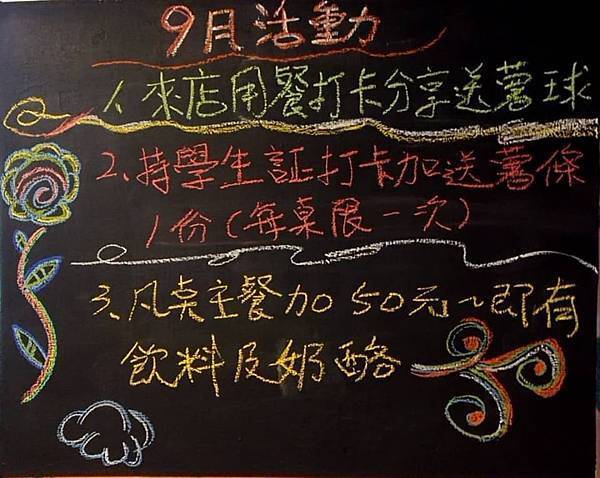 9月活動
1、來店用餐打卡分享送薯球
2、持學生証打卡加送薯條
1份(每桌限一次)
3、凡點主餐加50元~即有
飲料及奶酪